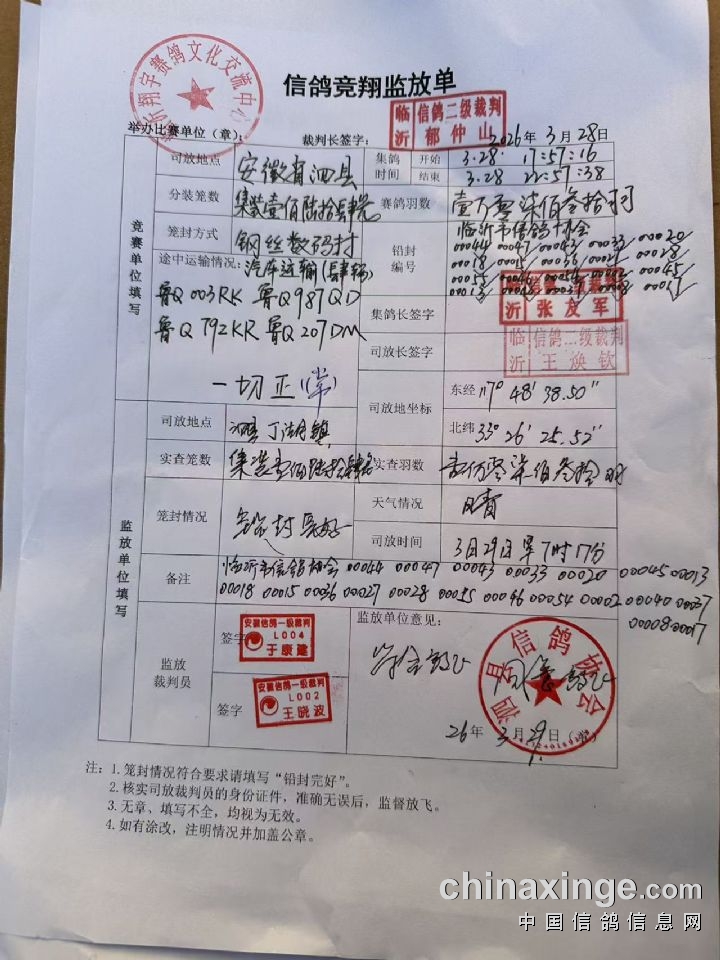 信鸽竞翔监放单
沂翔宇赛鸽文化交流中心
临沂 信鸽二级裁判 郁仲山
举办比赛单位（章）： 裁判长签字： 2026年3月28日
竞赛单位填写
司放地点 安徽省泗县 集鸽时间 开始 3.28. 17:57:16
结束 3.28 22:57:38
分装笼数 集装壹佰陆拾肆笼 赛鸽羽数 壹万零柒佰叁拾羽
笼封方式 钢丝数码封 铅封编号 临沂市信鸽协会
00044 00047 00043 00033 00020
00018 00015 00036 00028
00045
00013 00017
途中运输情况：汽车运输(肆辆)
鲁Q 003RK 鲁Q 987QD
鲁Q 792KR 鲁Q 207DM
一切正(常)
集鸽长签字 临沂 张友军
司放长签字 临沂 信鸽二级裁判 王焕钦
司放地坐标 东经 117° 48' 38.50"
北纬 33° 26' 25.52"
监放单位填写
司放地点 泗县丁湖镇
实查笼数 集装壹佰陆拾肆笼 实查羽数
笼封情况 铅封完好 天气情况 晴
司放时间 3月29日早7时17分
备注 临沂市信鸽协会 00044 00047 00043 00033 00020 00045 00013
00018 00015 00036 00027 00028 00055 00046 00054 00002 00040 00037
00008 00017
监放裁判员 签字 安徽信鸽一级裁判 L004 于康建
签字 安徽信鸽一级裁判 L002 王晓波
监放单位意见：
符合放飞 同意放飞
泗县信鸽协会
26年3月29日（章）
注：1.笼封情况符合要求请填写“铅封完好”。
2.核实司放裁判员的身份证件，准确无误后，监督放飞。
3.无章、填写不全，均视为无效。
4.如有涂改，注明情况并加盖公章。
chinaxinge.com
中国信鸽信息网